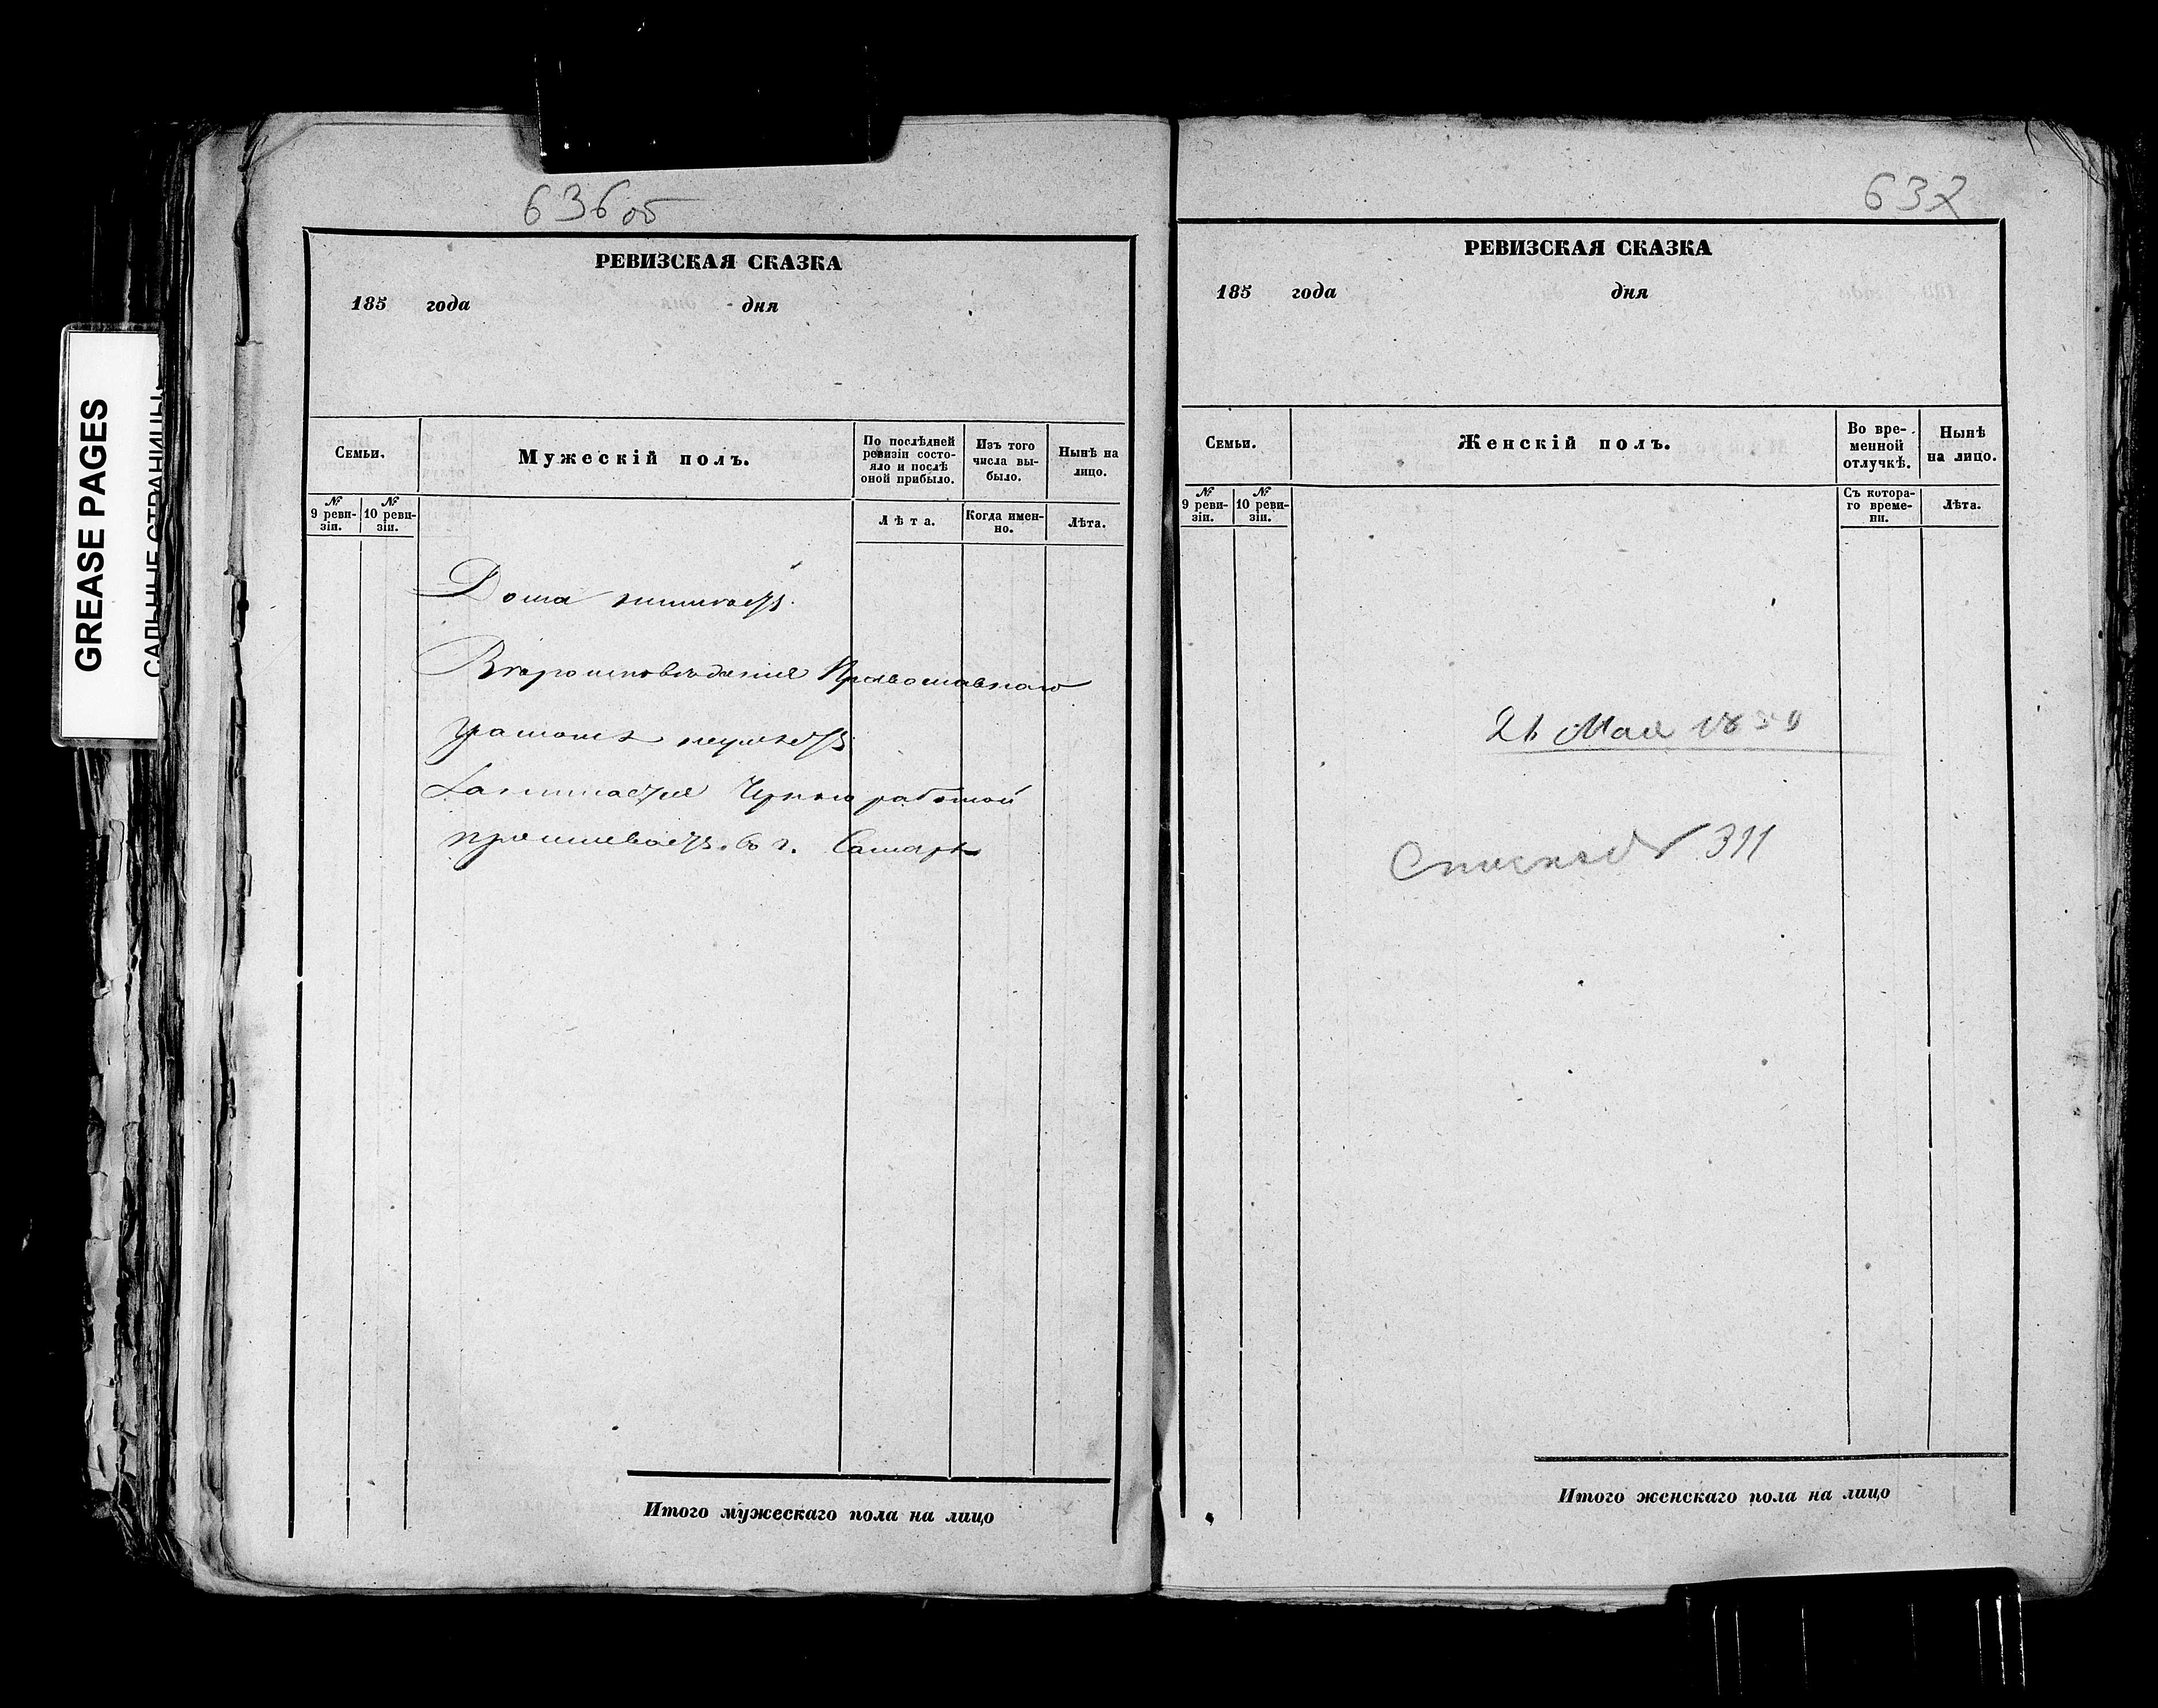 GREASE PAGES
САЛЬНЫЕ СТРАНИЦЫ
636 об
РЕВИЗСКАЯ СКАЗКА
185 года дня
Семьи.
Мужескій полъ.
По послѣдней ревизіи состо-
яло и послѣ
оной прибыло.
Изъ того
числа вы-
было.
Нынѣ на
лицо.
№
9 реви-
зіи.
№
10 реви-
зіи.
Лѣта.
Когда имен-
но.
Лѣта.
Дома неимѣетъ.
Вѣроисповѣданія Православнаго
грамотѣ неумѣетъ
Занимается Черною работой
проживаетъ въ г. Самарѣ
Итого мужескаго пола на лицо
637
РЕВИЗСКАЯ СКАЗКА
185 года дня
Семьи.
Женскій полъ.
Во вре-
менной
отлучкѣ.
Нынѣ
на лицо.
№
9 реви-
зіи.
№
10 реви-
зіи.
Съ котора-
го време-
ни.
Лѣта.
Мая
311
Итого женскаго пола на лицо